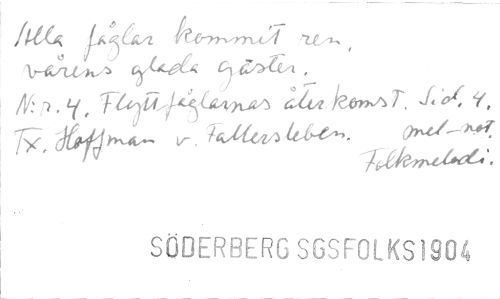 Alla fåglar kommit ren,
vårens glada gäster.
N:r. 4. Flyttfåglarnas återkomst. Sid. 4.
Tx. Hoffman v. Fallersleben. mel-not.
Folkmelodi.
SÖDERBERG SGSFOLKS1904